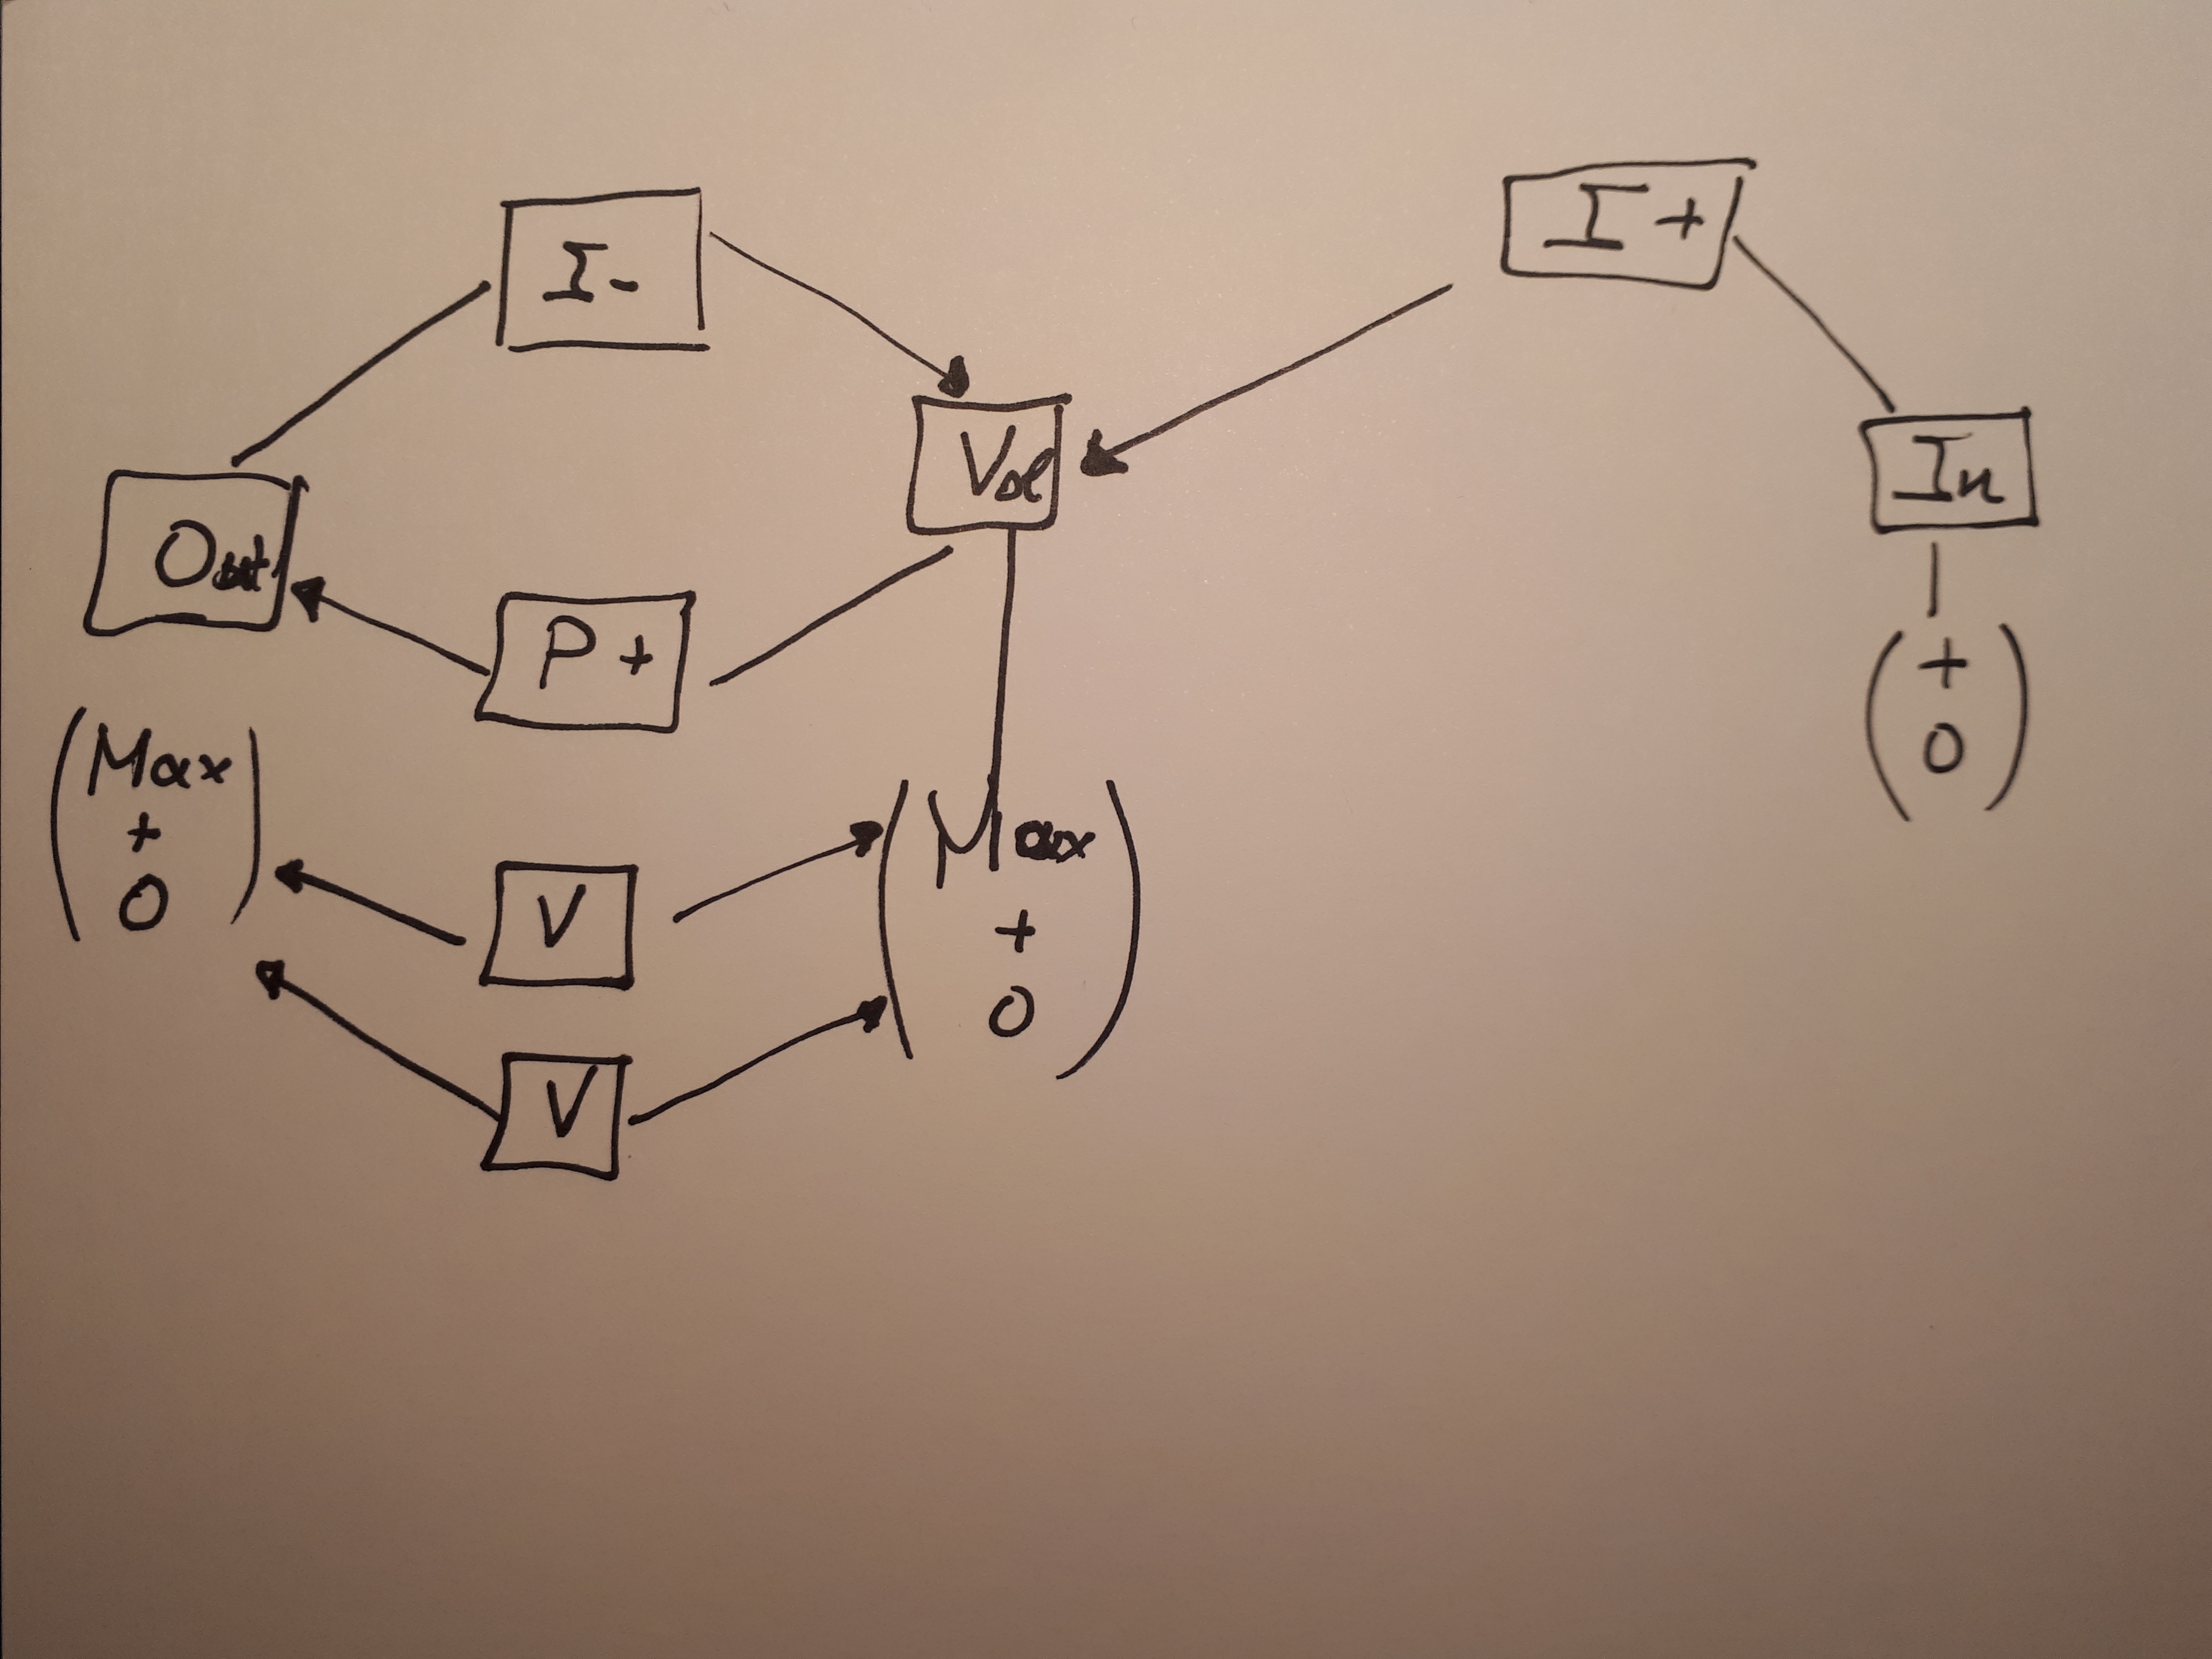 I-
I+
Vol
In
Out
P+
+
0
Max
+
0
Max
+
0
V
V